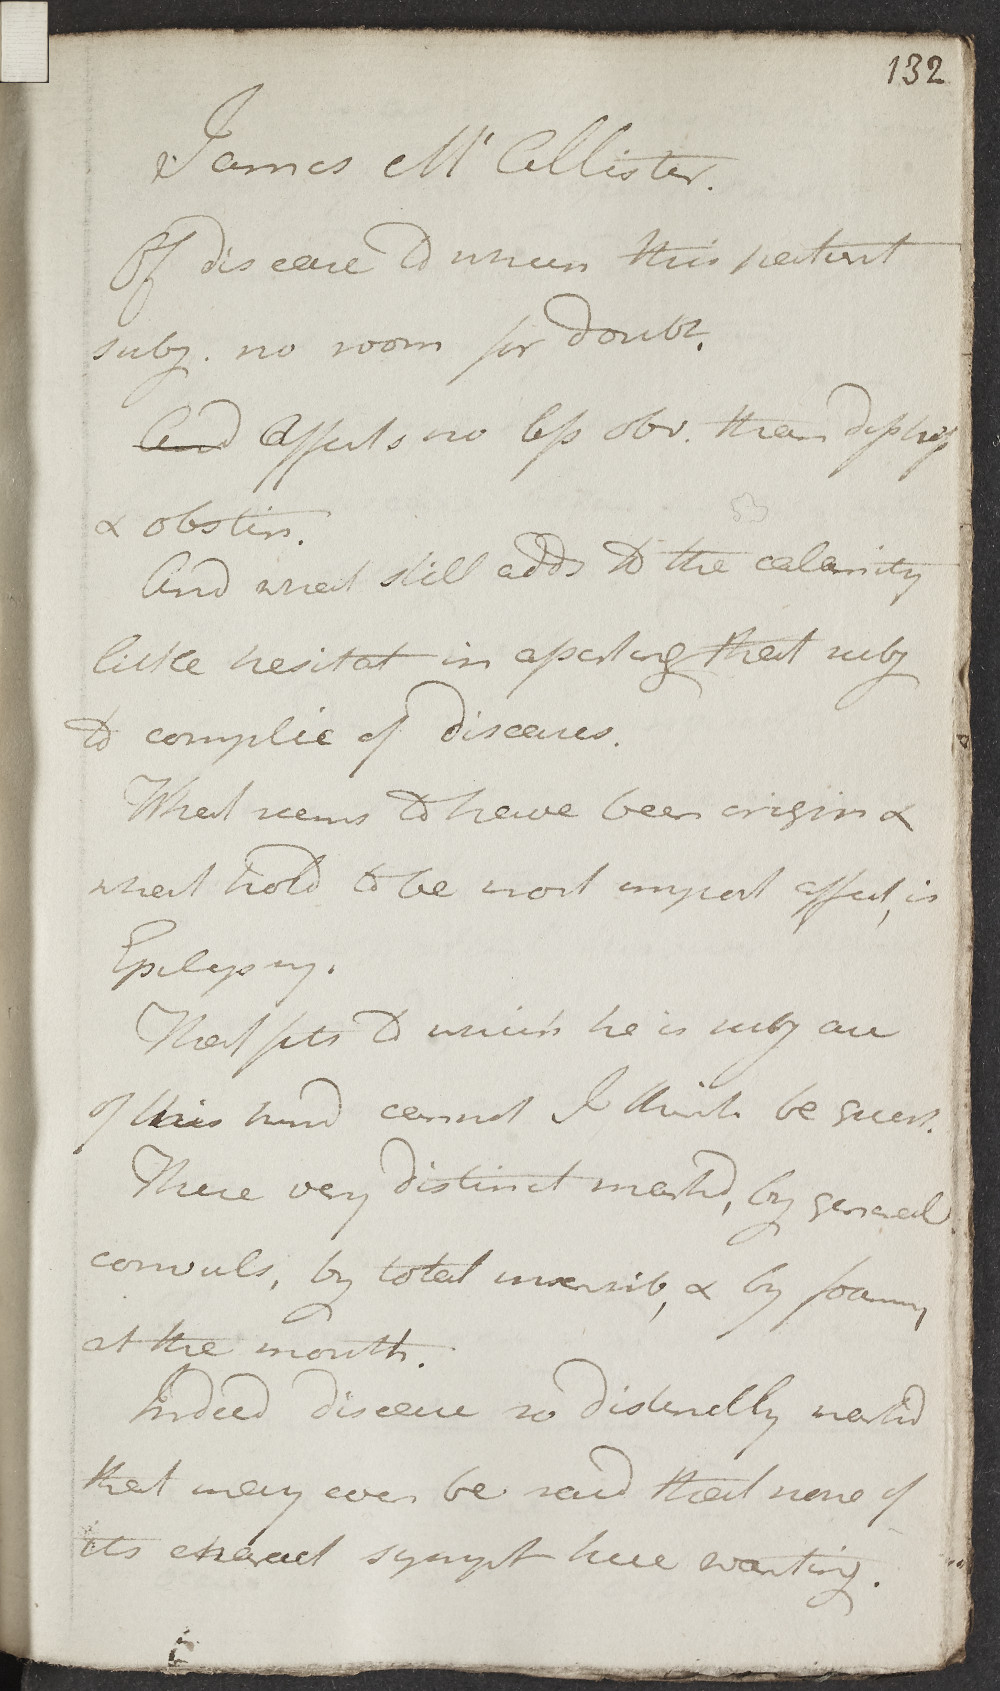 132
James McCallister.
Of disease to which this patient
subj. no room for doubt.
And Affects no less obv. than
& obstin.
53
And what still adds to the calamity
little hesitat in asserting that subj
to complic of diseases.
What seems to have been origin &
what hold to be most import affect, is
Epilepsy.
That fits to which he is subj are
of this kind cannot I think be quest.
These very distinct markd, by general
convuls, by total insensib, & by foaming
at the mouth.
Indeed disease so distinctly markd
that may even be said that none of
its charact sympt here wanting.